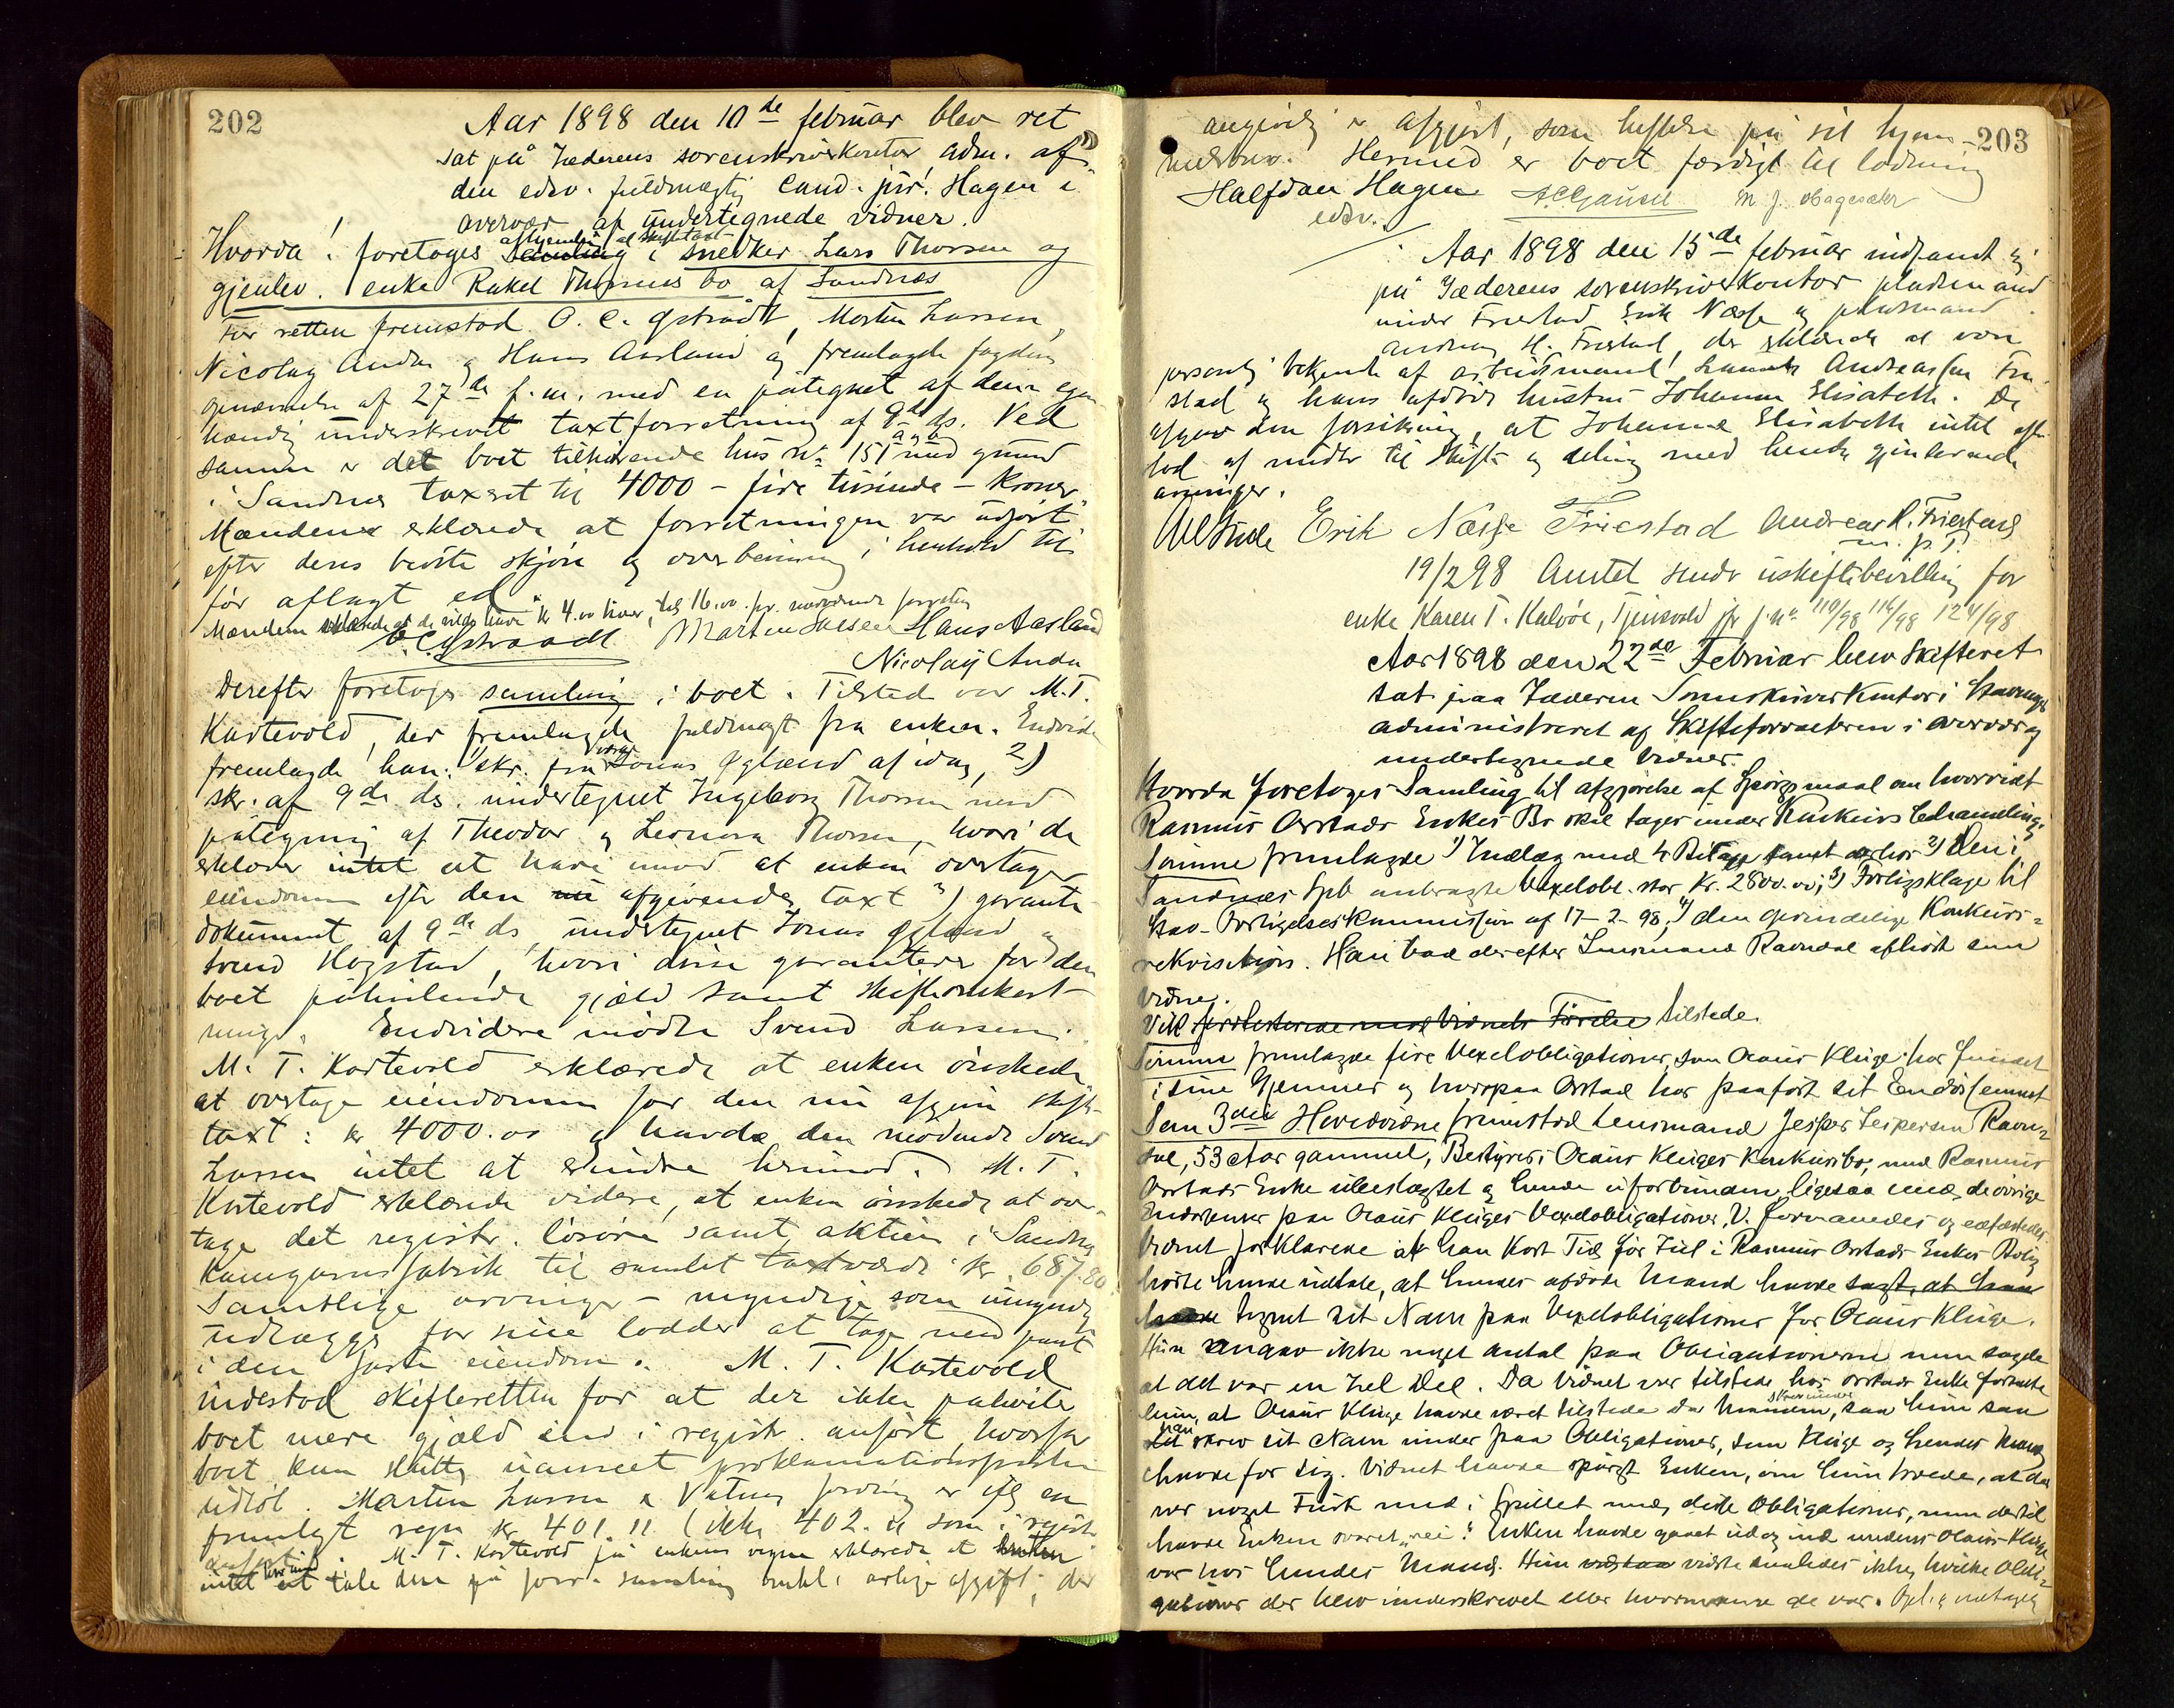 202
Aar 1898 den 10de februar blev ret
sat på Jæderens sorenskriverkontor adm. af
den edsv. fuldmægtig cand. jur. Hagen i
overvær af undertegnede vidner.
Hvorda! foretoges afhjemling af skiftetaxt i snedker Lars Thorsen og
gjenlev. enke Rakel Thorsens bo af Sandnæs
For retten fremstod O. C. Gstraadt, Morten Larsen,
Nicolay Anda og Hans Aasland og fremlagde fogdens
opnævnelse af 27de f. m. med en påtegnet af dem egen
hændig underskrevet taxtforretning af 9de ds. Ved
samme er det boet tilhørende hus No 151 a og b med grund
i Sandnæs taxeret til 4000 - fire tusinde - kroner.
Mændene erklærede at forretningen var udført
efter deres bedste skjøn og overbevisning i henhold til
før aflagt ed
Mændene erklærede at de vilde have kr 4.00 hver, tils 16.00 for nærværende forretn
O. C. Gstraadt Morten Larsen Hans Aasland
Nicolaij Anda
Derefter foretoges samling i boet. Tilsted var M. T.
Kastevold, der fremlagde fuldmagt fra enken. Endvidere
fremlagde han: 1) skr. fra værge Jonas Øglænd af idag, 2)
skr. af 9de ds. undertegnet Ingeborg Thorsen med
påtegning af Theodor og Leonora Thorsen, hvori de
erklærer intet at have imod at enken overtager
eiendommen efter den afgivende taxt 3) garanti-
dokument af 9de ds undertegnet Jonas Øglænd og
Svend Hogstad, hvori disse garanterer for den
boet påhvilende gjæld samt skifteomkost-
ninger. Endvidere mødte Svend Larsen.
M. T. Kastevold erklærede at enken ønskede
at overtage eiendommen for den nu afgivne skifte-
taxt: kr 4000.00 og havde den mødende Svend
Larsen intet at erindre herimod. M. T.
Kastevold erklærede videre, at enken ønskede at over-
tage det registr. løsøre samt aktien i Sandnæs
Kamgarnsfabrik til samlet taxtværdi kr. 687.80
Samtlige arvinger - myndige som umyndige
udlægges for sine lodder at tage med pant
i den faste eiendom. M. T. Kastevold
indestod skifteretten for at der ikke påhviler
boet mere gjæld end i registr. anført, hvorfor
boet kan sluttes uanseet proklamationsfristens
udløb. Morten Larsen Vatnes fordring er iflg en
fremlagt regn kr 401.11 (ikke 402. som i registr.
anført). M. T. Kastevold på enkens vegne erklærede at
intet at tale den på forr. samling årlige afgift, der
203
angivelig er afgjort, som heftelse på sit hjem
Hermed er boet færdigt til lodning
Halfdan Hagen A. C. Gausel M. J. Hagesæter
edsv.
Aar 1898 den 15de februar indfandt sig
på Jæderens sorenskriverkontor pladsmand
under Friestad Erik Næsse og pladsmand
Andreas H. Friestad, der erklærede at være
personlig bekjendt af arbeidsmand Andreassen Frie-
stad og hans afdøde hustru Johanne Elisabeth. De
afgav den forsikring, at Johanne Elisabeth intet efter-
lod af midler til skifte og deling med hendes gjenlevende
arvinger.
Erik Næsse Friestad Andreas H. Friestad
m. p. P.
19/2 98 Amtet sender uskiftebevilling for
enke Karen T. Kalvøe, Tjensvold jfr j. no 110/98 116/98 124/98
Aar 1898 den 22de Februar blev Skifteret
sat paa Jæderens Sorenskriverkontor i Stavanger
administreret af Skifteforvalteren i overvær af
undertegnede Vidner.
Hvorda foretoges Samling til afgjørelse af Spørgsmaal om hvorvidt
Rasmus Orstads Enkes Bo skal tages under Konkurs behandling.
Tønnes fremlagde 1) Indlæg med 4 Bilage samt 2) Den i
Sandnes Spb anbragte Vexelobl. stor Kr. 2800.00; 3) Forligsklage til
Stav. Forligelseskommission af 17-2-98, 4) den oprindelige Konkurs-
rekvisition. Han bad derefter Lensmand Ravndal afhørt som
Vidne.
Vill protesterede mod Vidnets Førelse tilstede.
Tønnes fremlagde fire Vexelobligationer, som Olaus Kluge har fundet
i sine Gjemmer og hvorpaa Orstad har paaført sit Endossement
Som 3die Hovedvidne fremstod Lensmand Jesper Jespersen Ravn-
dal, 53 Aar gammel, Bestyrer i Olaus Kluges Konkursbo, med Rasmus
Orstads Enke ubeslægtet og hende uforbunden, ligesaa med de øvrige
Endossenter paa Olaus Kluges Vexelobligationer. V. formanedes og edfæstedes.
Vidnet forklarede at han kort Tid før Jul i Rasmus Orstads Enkes Bolig
hørte hende udtale, at hendes afdøde Mand havde sagt, at han
havde tegnet sit Navn paa Vexelobligationer for Olaus Kluge.
Hun angav ikke noget Antal paa Obligationerne men sagde
at det var en hel Del. Da Vidnet var tilstede hos Orstads Enke fortalte
hun, at Olaus Kluge havde været tilstede da Manden skrev under, saa hun saa
han skrev sit Navn under paa Obligationer, som Kluge og hendes Mand
havde for sig. Vidnet havde spurgt Enken, om hun troede, at der
var noget Fusk med i Spillet med disse Obligationer, men dertil
havde Enken svaret „nei". Enken havde gaaet ud og ind medens Olaus Kluge
var hos hendes Mand. Hun vidste saaledes ikke, hvilke Obli-
gationer der blev underskrevet eller hvormange de var. Opl. og vedtaget